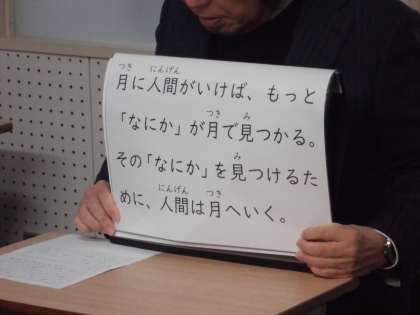 月に人間がいけば、もっと
「なにか」が月で見つかる。
その「なにか」を見つけるた
めに、人間は月へいく。